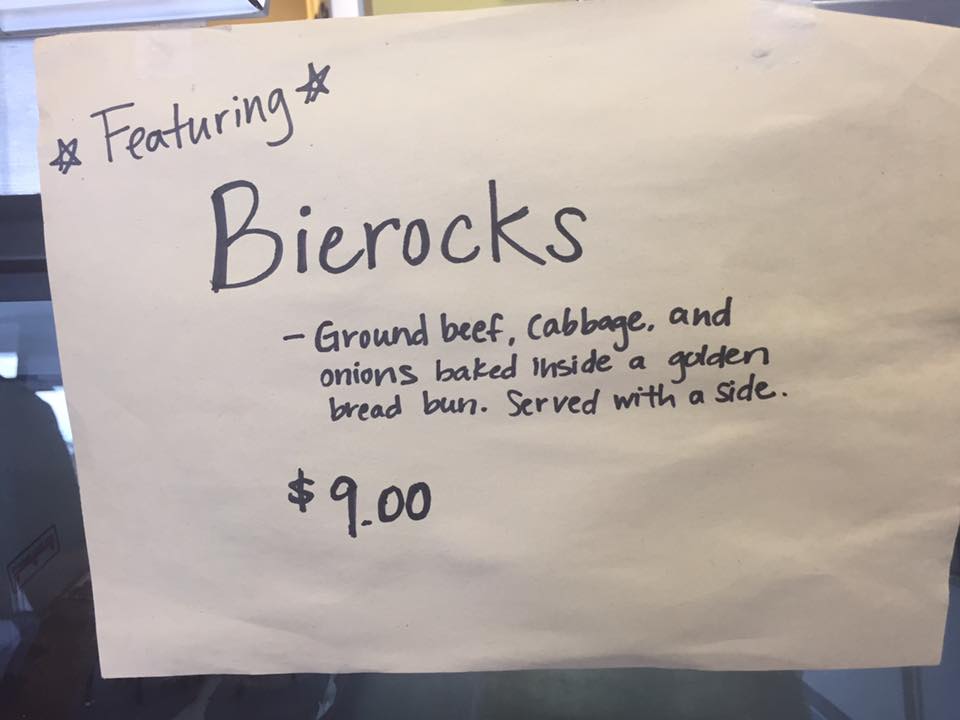 ☆ Featuring ☆
Bierocks
- Ground beef, cabbage, and
onions baked inside a golden
bread bun. Served with a side.
$9.00